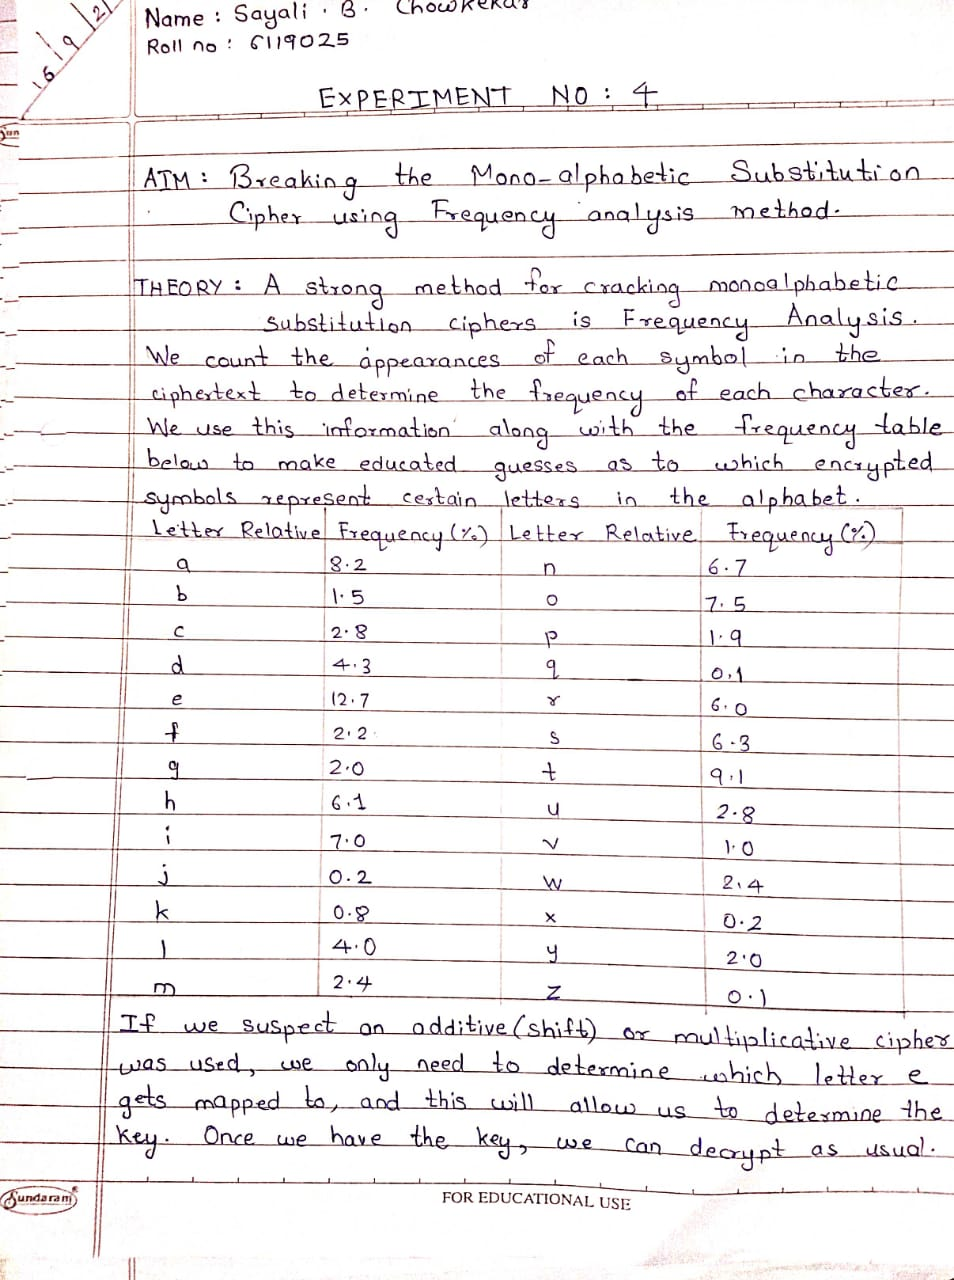 16/9/21
Name : Sayali . B. Chowkekar
Roll no : 6119025
EXPERIMENT NO : 4
AIM : Breaking the Mono-alphabetic Substitution
Cipher using Frequency analysis method.
THEORY : A strong method for cracking monoalphabetic
substitution ciphers is Frequency Analysis.
We count the appearances of each symbol in the
ciphertext to determine the frequency of each character.
We use this information along with the frequency table
below to make educated guesses as to which encrypted
symbols represent certain letters in the alphabet.
Letter Relative Frequency (%) Letter Relative Frequency (%)
a 8.2 n 6.7
b 1.5 o 7.5
c 2.8 p 1.9
d 4.3 q 0.1
e 12.7 r 6.0
f 2.2 s 6.3
g 2.0 t 9.1
h 6.1 u 2.8
i 7.0 v 1.0
j 0.2 w 2.4
k 0.8 x 0.2
l 4.0 y 2.0
m 2.4 z 0.1
If we suspect an additive (shift) or multiplicative cipher
was used, we only need to determine which letter e
gets mapped to, and this will allow us to determine the
key. Once we have the key, we can decrypt as usual.
Sundaram
FOR EDUCATIONAL USE